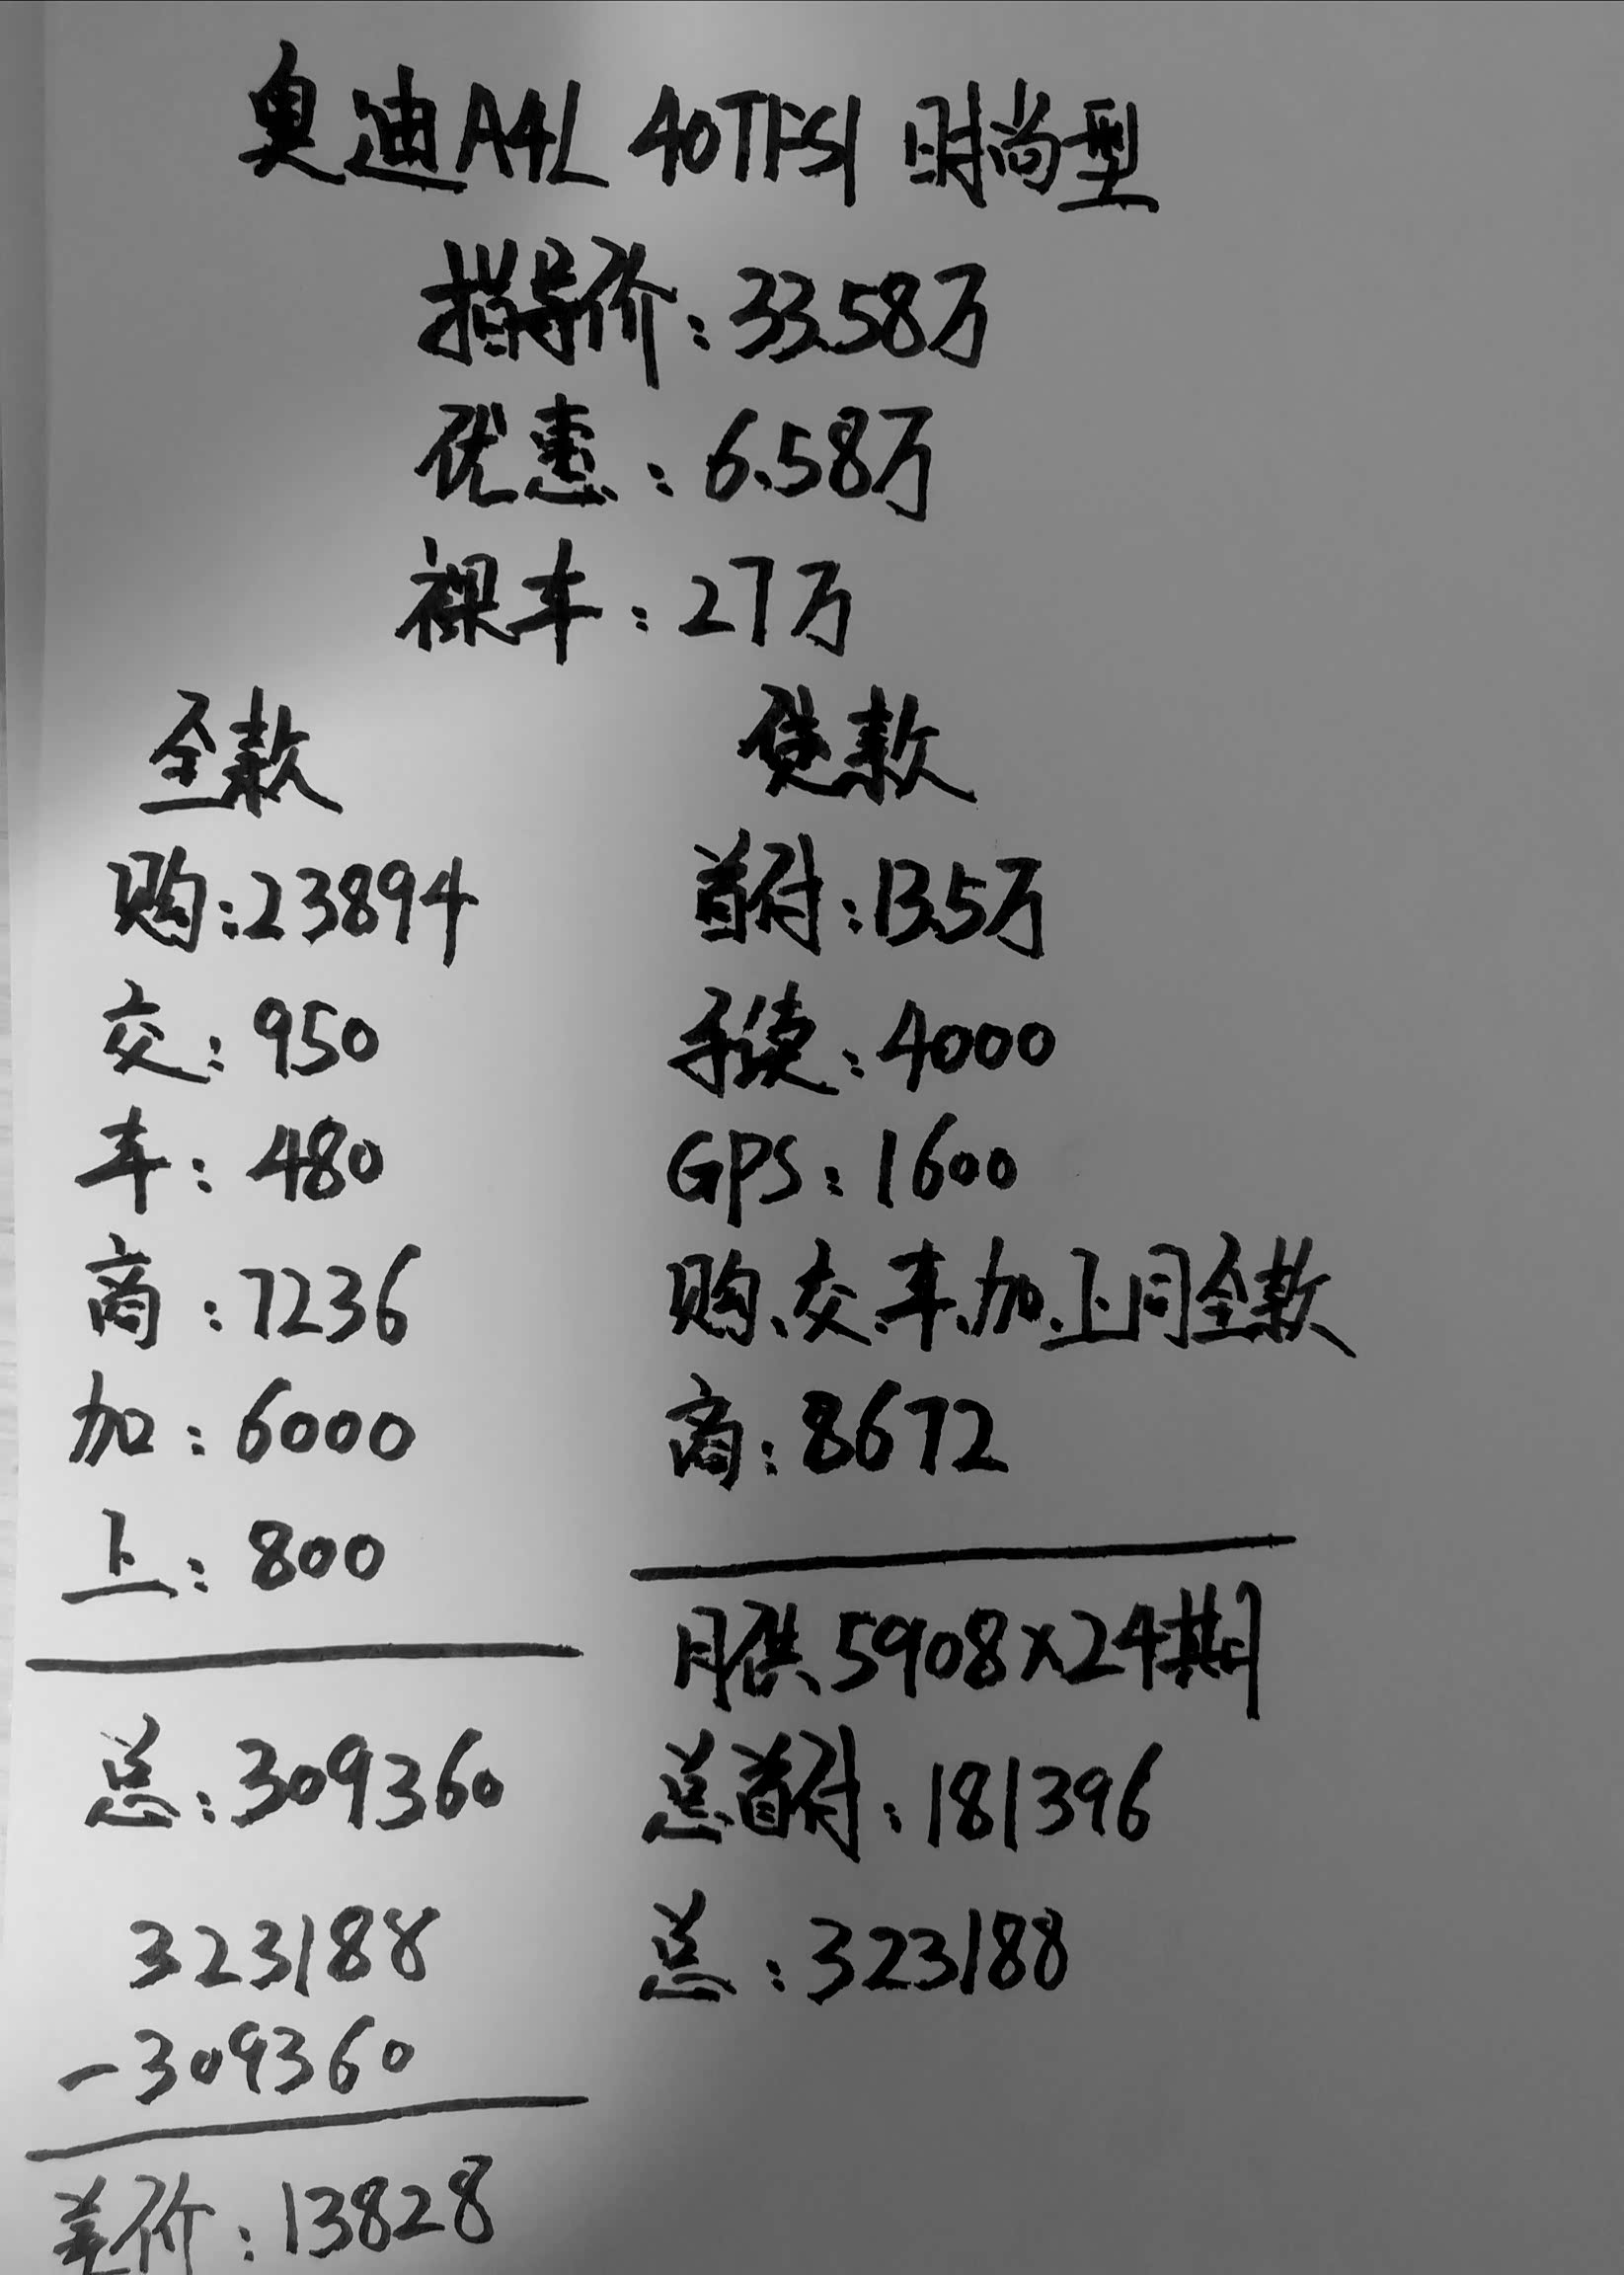 奥迪A4L 40TFSI 时尚型
指导价:33.58万
优惠:6.58万
裸车:27万
全款
购:23894
交:950
车:480
商:7236
加:6000
上:800
总:309360
323188
-309360
差价:13828
贷款
首付:13.5万
手续:4000
GPS:1600
购、交、车、加、上同全款
商:8672
月供5908×24期
总首付:181396
总:323188